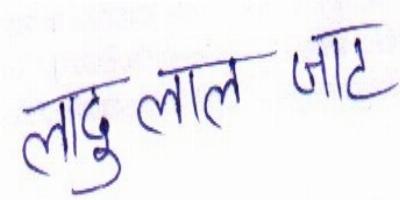 लादु लाल जाट